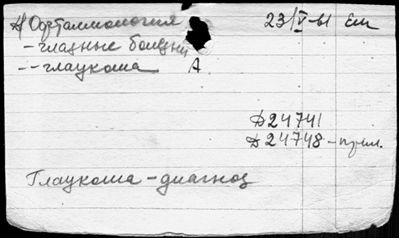 Д) Офталмология 23/V-61 Ем
- глазные болезни
-- глаукома А.
Д 24741
Д 24748 - прил.
Глаукома - диагноз